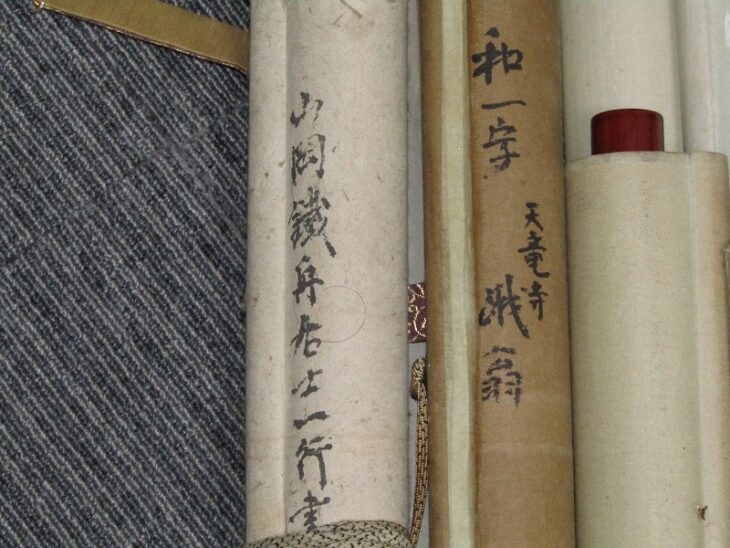 和一字
天竜寺
峨翁
山岡鐵舟居士一行書